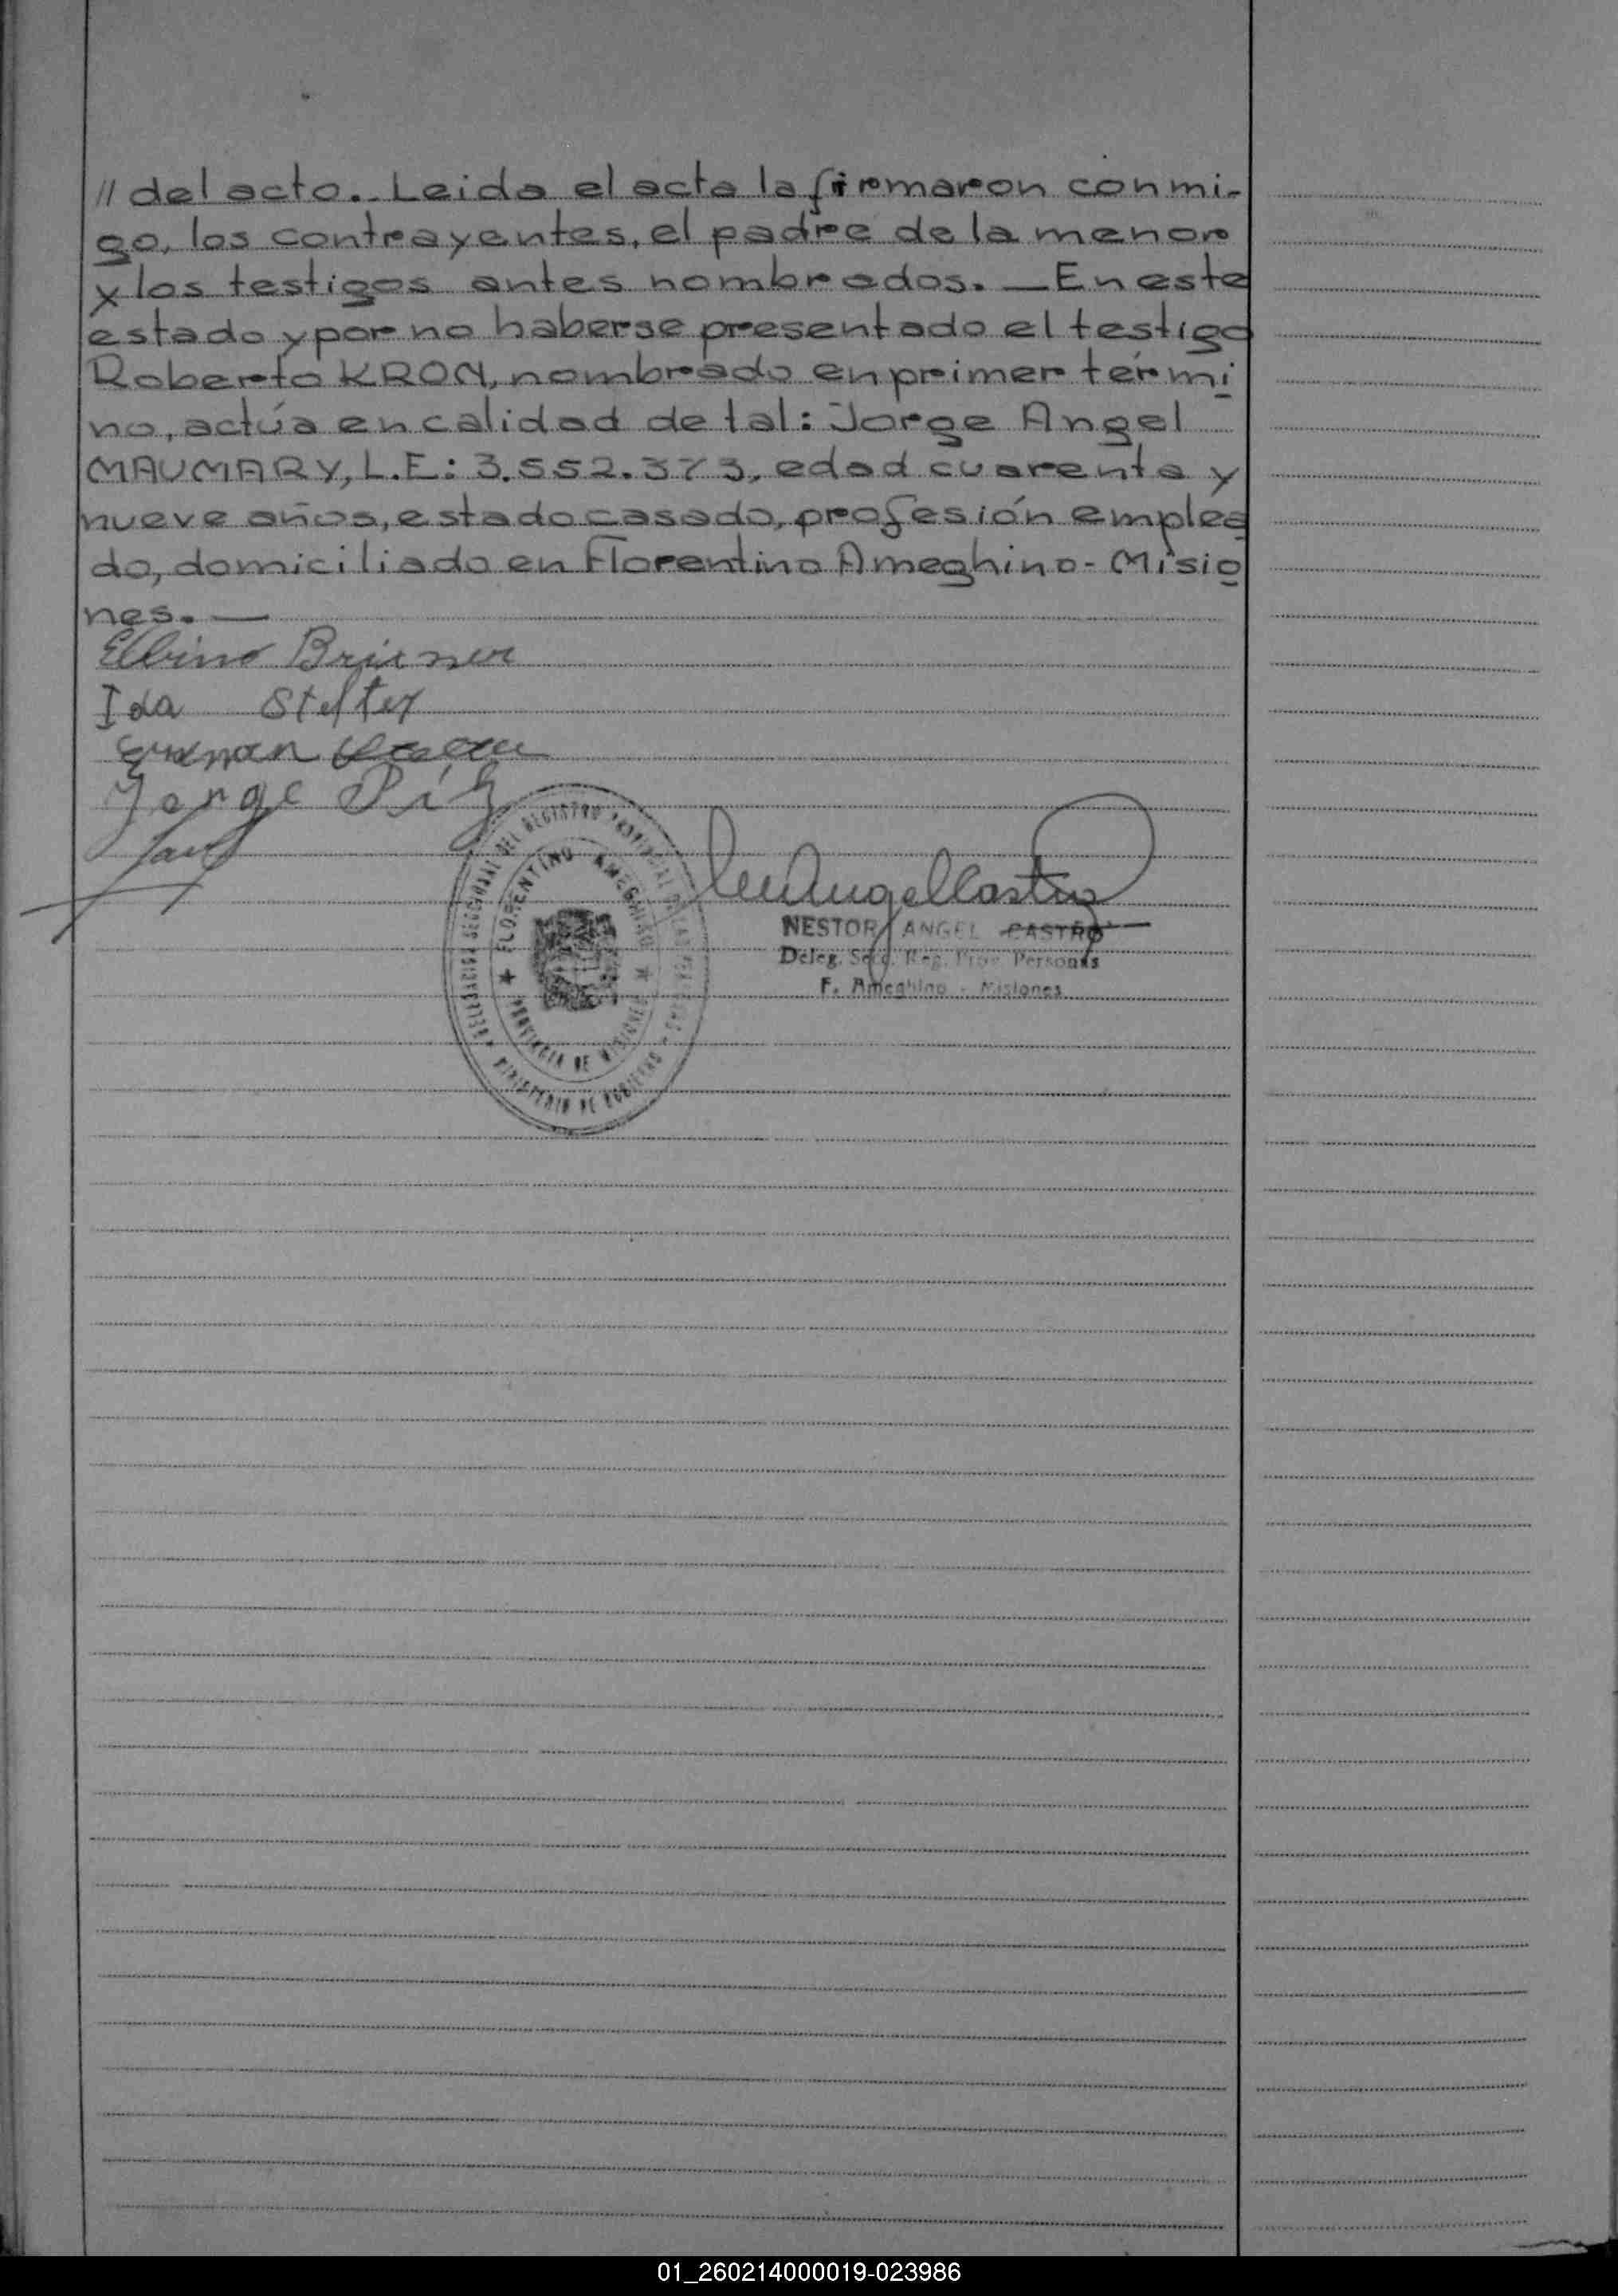 // del acto.- Leida el acta la firmaron conmi-
go, los contrayentes, el padre de la menor
y los testigos antes nombrados. — En este
estado y por no haberse presentado el testigo
Roberto KRON, nombrado en primer térmi
no, actúa en calidad de tal: Jorge Angel
MAUMARY, L.E: 3.552.373, edad cuarenta y
nueve años, estado casado, profesión emplea
do, domiciliado en Florentino Ameghino - Misio
nes. —
Elbino Brixner
Ida Stelter
Jorge
DEL REGISTRO PROVINCIAL DE LAS PERSONAS
FLORENTINO AMEGHINO
PROVINCIA DE MISIONES
MINISTERIO DE GOBIERNO
Angel Castro
NESTOR ANGEL CASTRO
Deleg. Secc. Reg. Prov. Personas
F. Ameghino - Misiones
01_260214000019-023986